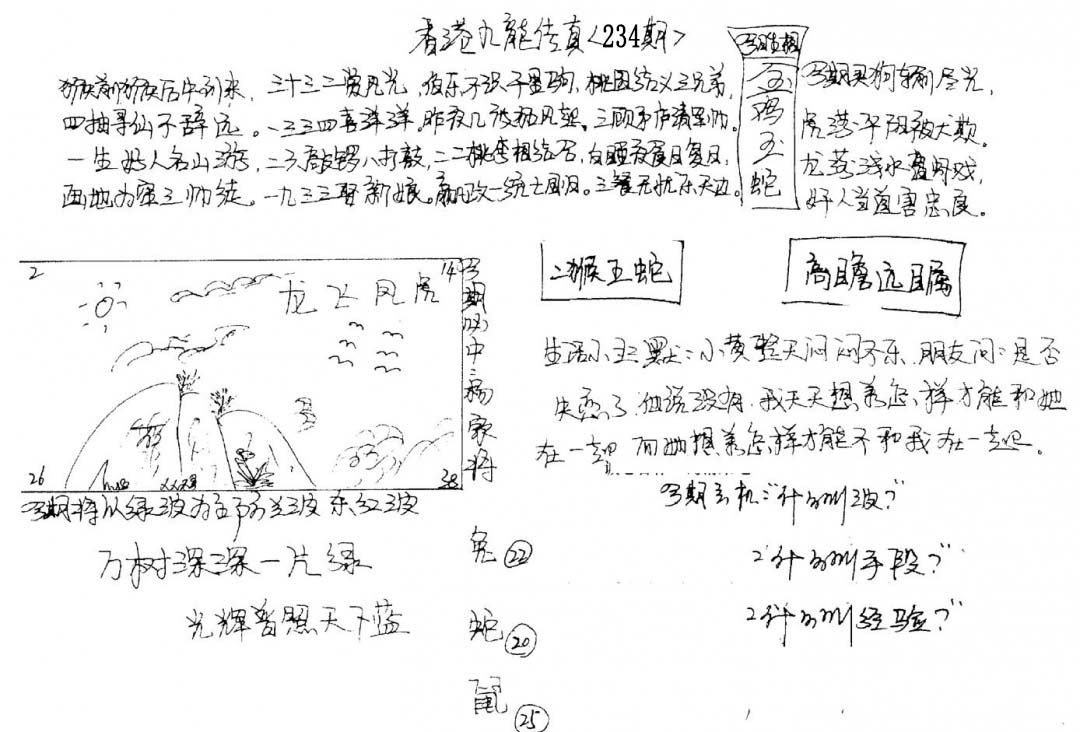 香港九龍传真<234期>
猴前猴后牛到来，三十三二赏月光，伯乐不识千里驹，桃园结义三兄弟，
四抽寻仙不辞远。一三三四喜洋洋。昨夜几被狂风起。三顾茅庐请军师。
一生好人名山游，二六敲锣八打鼓，二二桃李相结否，白睡夜蚕日复日，
西地为军三师徒。一九三三娶新娘。嬴政一统七国归。三餐无忧乐天边。
另期生相
金鸡玉蛇
另期买狗输尽光，
虎落平阳被犬欺。
龙落浅水遭虾戏，
奸人当道害忠良。
2
14
龙飞凤虎
26
38
另期必中：杨家将
二猴王蛇
高瞻远瞩
生活小主题：小黄整天闷闷不乐，朋友问：是否
失恋了，他说没有，我天天想着怎样才能和她
在一起，而她想着怎样才能不和我在一起。
另期玄机："什么叫波？"
2"什么叫手段？"
2"什么叫经验？"
另期将以绿波为主防兰波东红波
万树深深一片绿
光辉普照天下蓝
兔 22
蛇 20
鼠 25